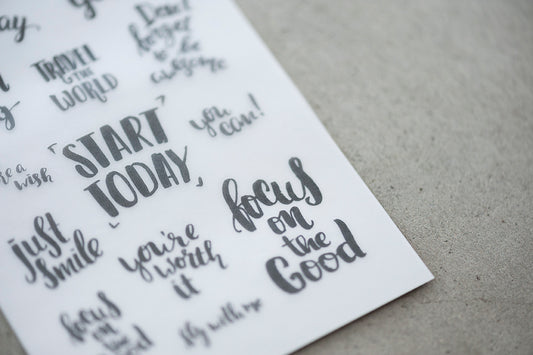 ay
TRAVEL
THE
WORLD
Don't
forget
to be
awesome
you
can!
"START
TODAY"
a
wish
just
smile
you're
worth
it
focus
on
the
Good
focus
on
the
fly with me